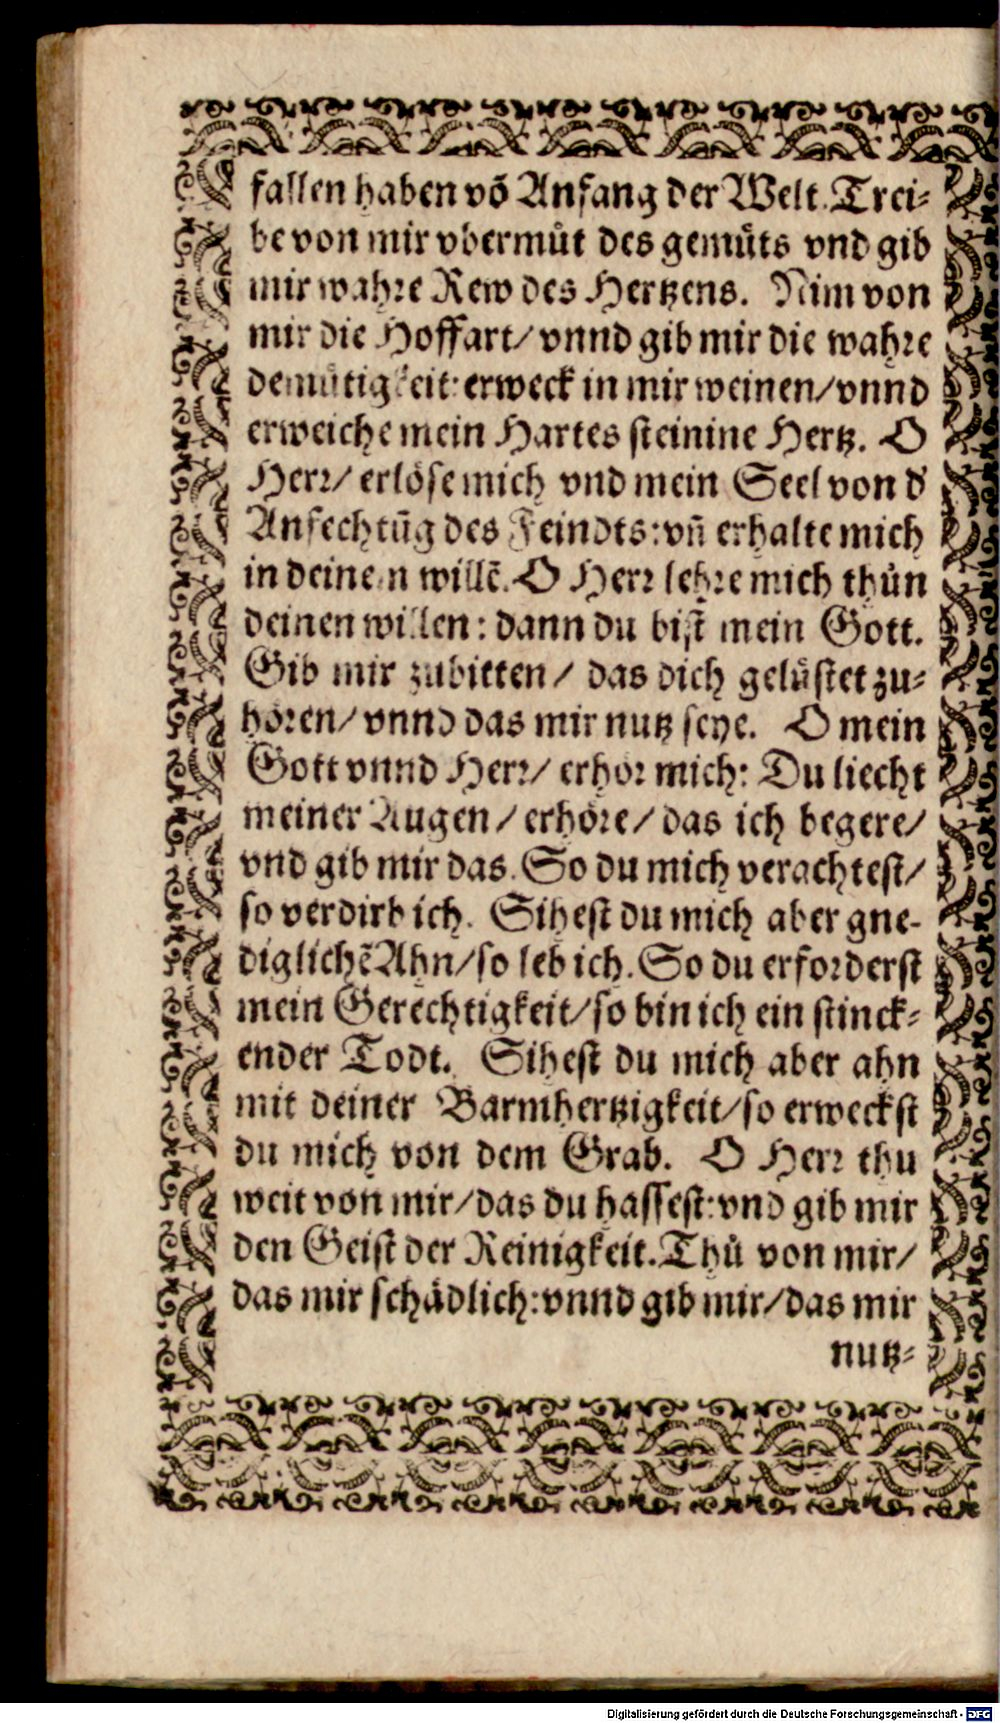 fallen haben võ Anfang der Welt. Trei⸗
be von mir vbermuͤt des gemuͤts vnd gib
mir wahre Rew des Hertzens. Nim von
mir die Hoffart/ vnnd gib mir die wahre
demuͤtigkeit: erweck in mir weinen/ vnnd
erweiche mein Hartes steinine Hertz. O
Herr/ erloͤse mich vnd mein Seel von d'
Anfechtũg des Feindts: vñ erhalte mich
in deinem willẽ. O Herr lehre mich thuͤn
deinen willen: dann du bist mein Gott.
Gib mir zubitten/ das dich geluͤstet zu⸗
hoͤren/ vnnd das mir nutz seye. O mein
Gott vnnd Herr/ erhoͤr mich: Du liecht
meiner Augen/ erhoͤre/ das ich begere/
vnd gib mir das. So du mich verachtest/
so verdirb ich. Sihest du mich aber gne-
diglichẽ Ahn/ so leb ich. So du erforderst
mein Gerechtigkeit/ so bin ich ein stinck⸗
ender Todt. Sihest du mich aber ahn
mit deiner Barmhertzigkeit/ so erweckst
du mich von dem Grab. O Herr thu
weit von mir/ das du hassest: vnd gib mir
den Geist der Reinigkeit. Thuͤ von mir/
das mir schaͤdlich: vnnd gib mir/ das mir
nutz⸗
Digitalisierung gefördert durch die Deutsche Forschungsgemeinschaft - DFG